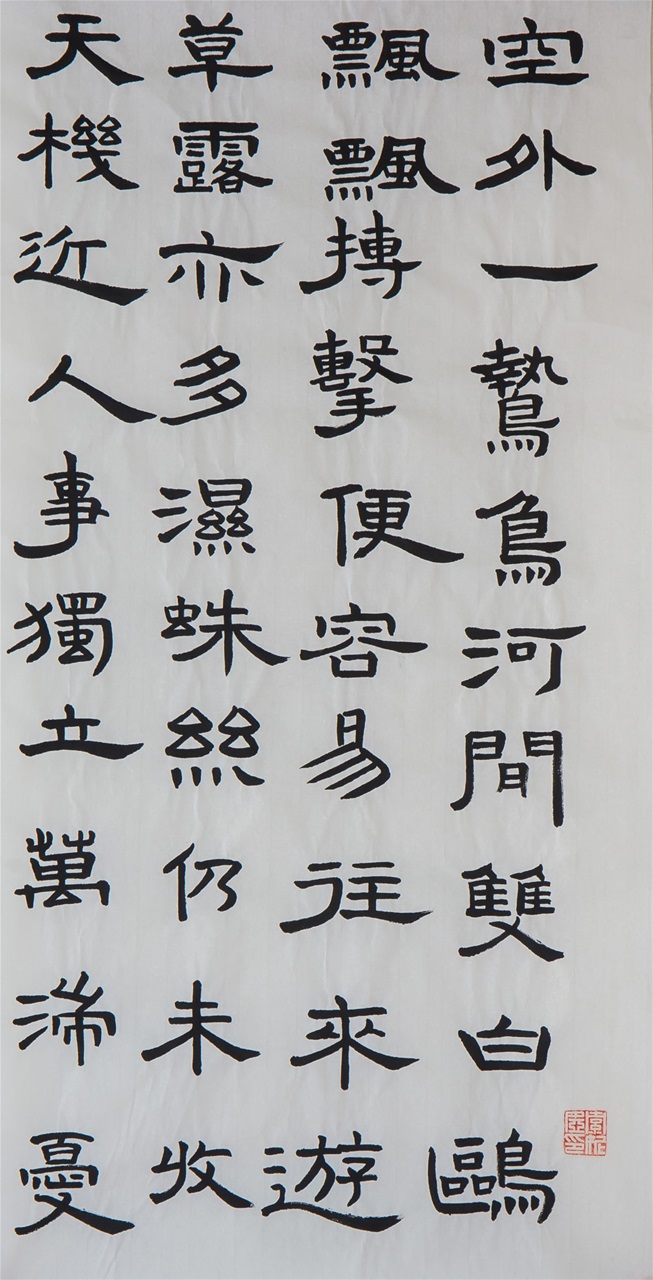 空外一鷙鳥河間雙白鷗
飄飄搏擊便容易往來遊
草露亦多濕蛛絲仍未收
天機近人事獨立萬湍憂